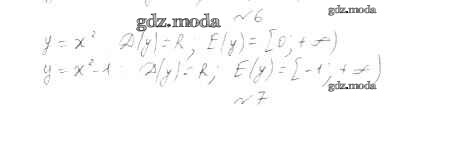 №6
gdz.moda
gdz.moda
y = x² D(y) = R; E(y) = [0; +∞)
y = x² - 1: D(y) = R; E(y) = [-1; +∞)
gdz.moda
№7